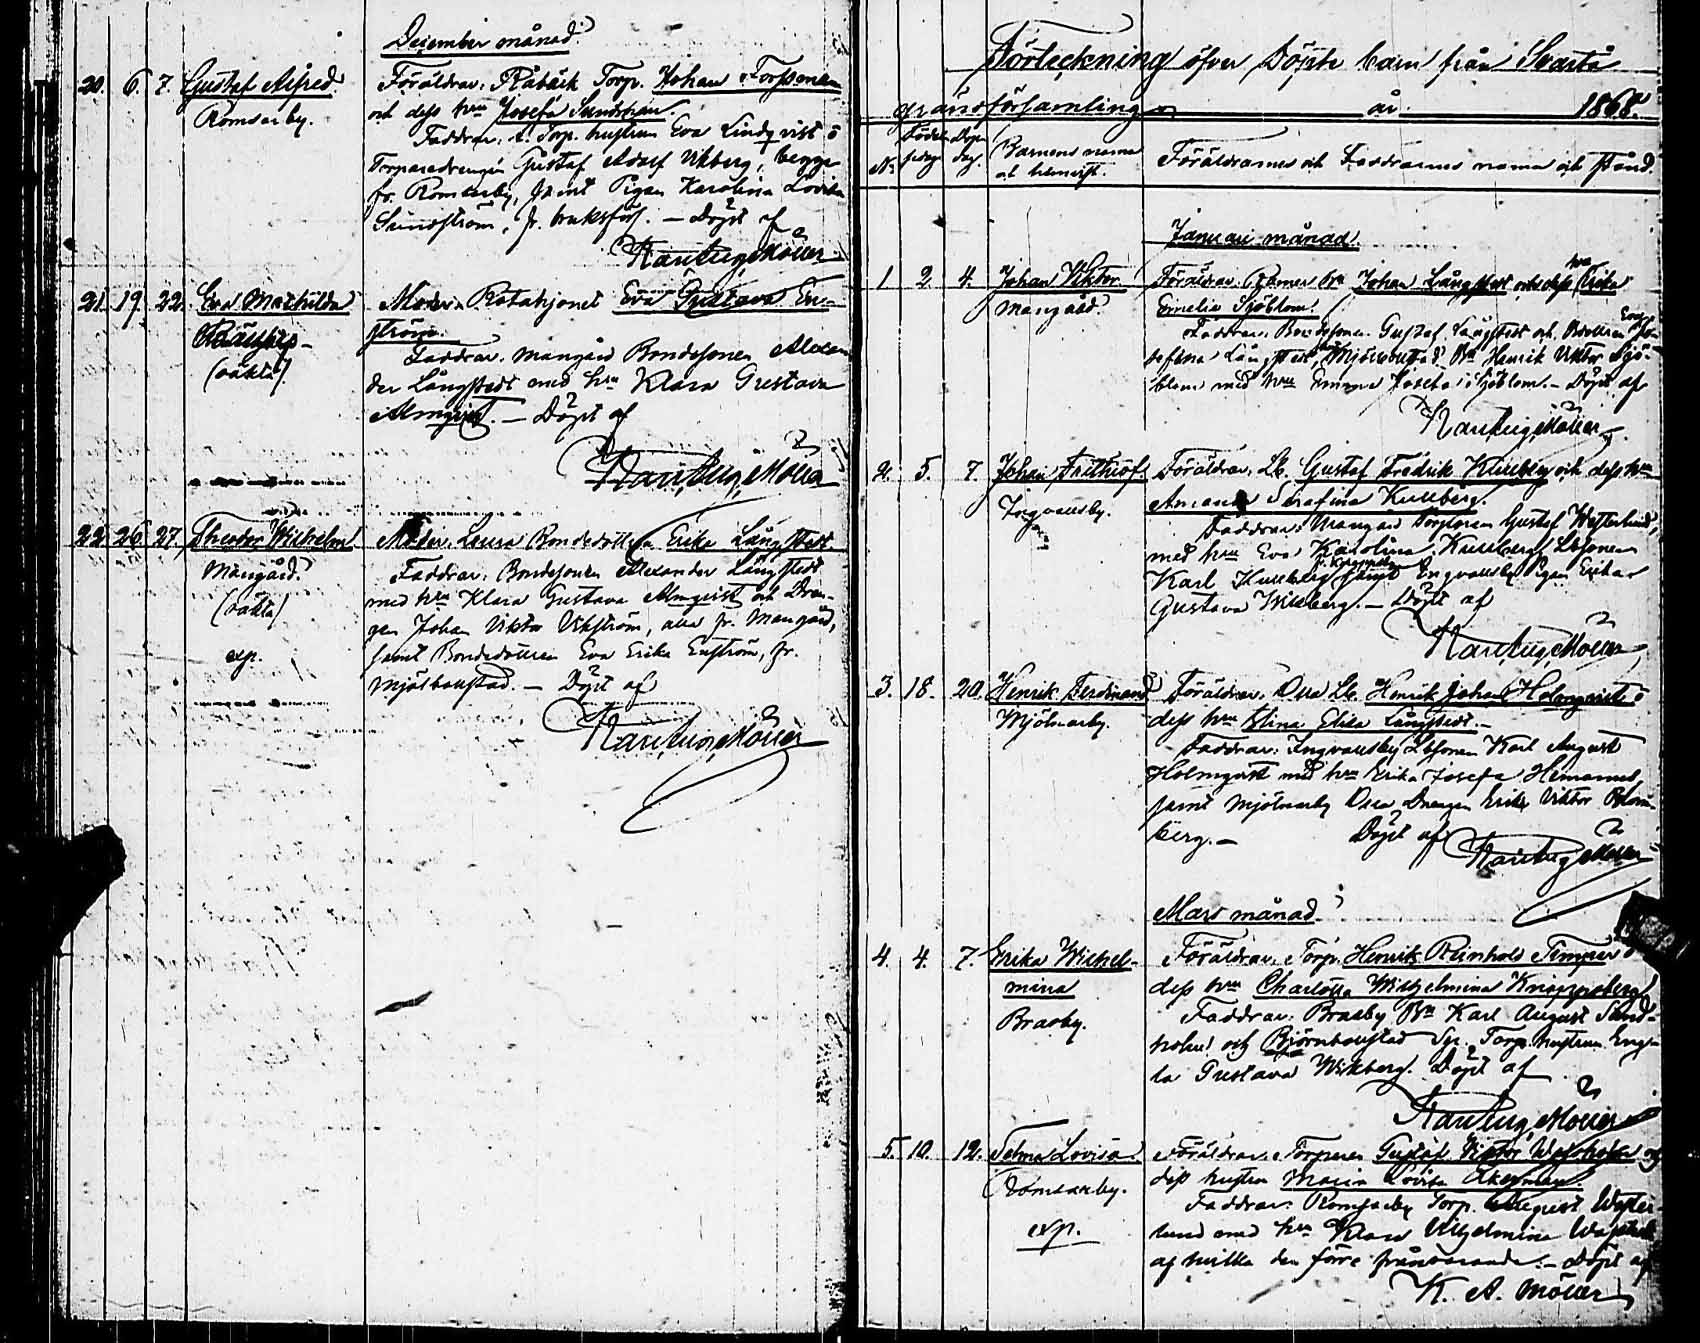 December månad.
20. 6. 7. Gustaf Alfred
Romsarby.
Föräldrar: Råbäck Torp. Johan Forssman
och dess hru Josefa Sundman.
Faddrar: Torp. hustrun Eva Lindqvist o
Torparedrengen Gustaf Adolf Vikberg, begge
fr. Romsarby, samt Pigan Karolina Lovisa
Sundström, fr. bruksförs. — Döpt af
Karl Aug. Möller
21. 19. 22. Eva Mathilda
(oäkta)
Moder: Rotehjonet Eva Gustava En-
ström.
Faddrar: Mangård Bondesonen Alexan
der Långstedt med hru Klara Gustava
Almqvist. — Döpt af
Karl Aug. Möller
22. 26. 27. Theodor Wilhelm
Mangård.
(oäkta)
exp.
Moder: Bondedottern Erika Långstedt.
Faddrar: Bondesonen Alexander Långstedt
med hru Klara Gustava Almqvist och Dren-
gen Johan Viktor Vikström, alla fr. Mangård,
samt Bondedottren Eva Erika Enström, fr.
Mjölbolstad. — Döpt af
Karl Aug. Möller
Förteckning öfver Döpta barn från Svartå
gränsförsamling år 1868.
No Födelsedag Döpn dag. Barnens namn och hemvist. Föräldrarnes och Faddrarnes namn och stånd.
Januari månad.
1. 2. 4. Johan Viktor
Mangård.
Föräldrar: Johan Långstedt och dess hru Erika
Ernelia Sjöblom.
Faddrar: Bondesonen Gustaf Långstedt och Eva Jo-
sefina Långstedt, Henrik Viktor Sjö-
blom med hru Emma Josefa Sjöblom. — Döpt af
Karl Aug. Möller
2. 5. 7. Johan Frithiof.
Ingvallsby.
Föräldrar: Lb. Gustaf Fredrik Kullberg och dess hru
Amanda Serafina Kullberg.
Faddrar: Mangård Gustaf Westerlund,
med hru Eva Karolina Kullberg, Lbsonen
Karl Kullberg samt Engvallsby Pigan Erika
Gustava Wikberg. — Döpt af
Karl Aug. Möller
3. 18. 20. Henrik Ferdinand
Mjölnarby.
Föräldrar: Lb. Henrik Johan Holmqvist o
dess hru Stina Elisa Långstedt. —
Faddrar: Ingvallsby Lbsonen Karl August
Holmqvist med hru Erika Josefa
samt Mjölnarby Drengen Erik Viktor Blom-
berg. — Döpt af
Karl Aug. Möller
Mars månad.
4. 4. 7. Erika Wilhel-
mina
Brasby.
Föräldrar: Torp. Henrik Reinhold Timper o
dess hru Charlotta Wilhelmina Knipperberg
Faddrar: Brasby Karl August Sund-
holm och Björnbolstad Torp. hustrun Enge-
la Gustava Wikberg. Döpt af
Karl Aug. Möller
5. 10. 12. Selma Lovisa
Romsarby.
exp.
Föräldrar: Torparen Gustaf Viktor och
dess hustru Maria Lovisa Åkerman.
Faddrar: Romsarby Torp. August Wester-
lund med hru Klara Vilhelmina
af hvilka den förre frånvarande. — Döpt af
K. A. Möller